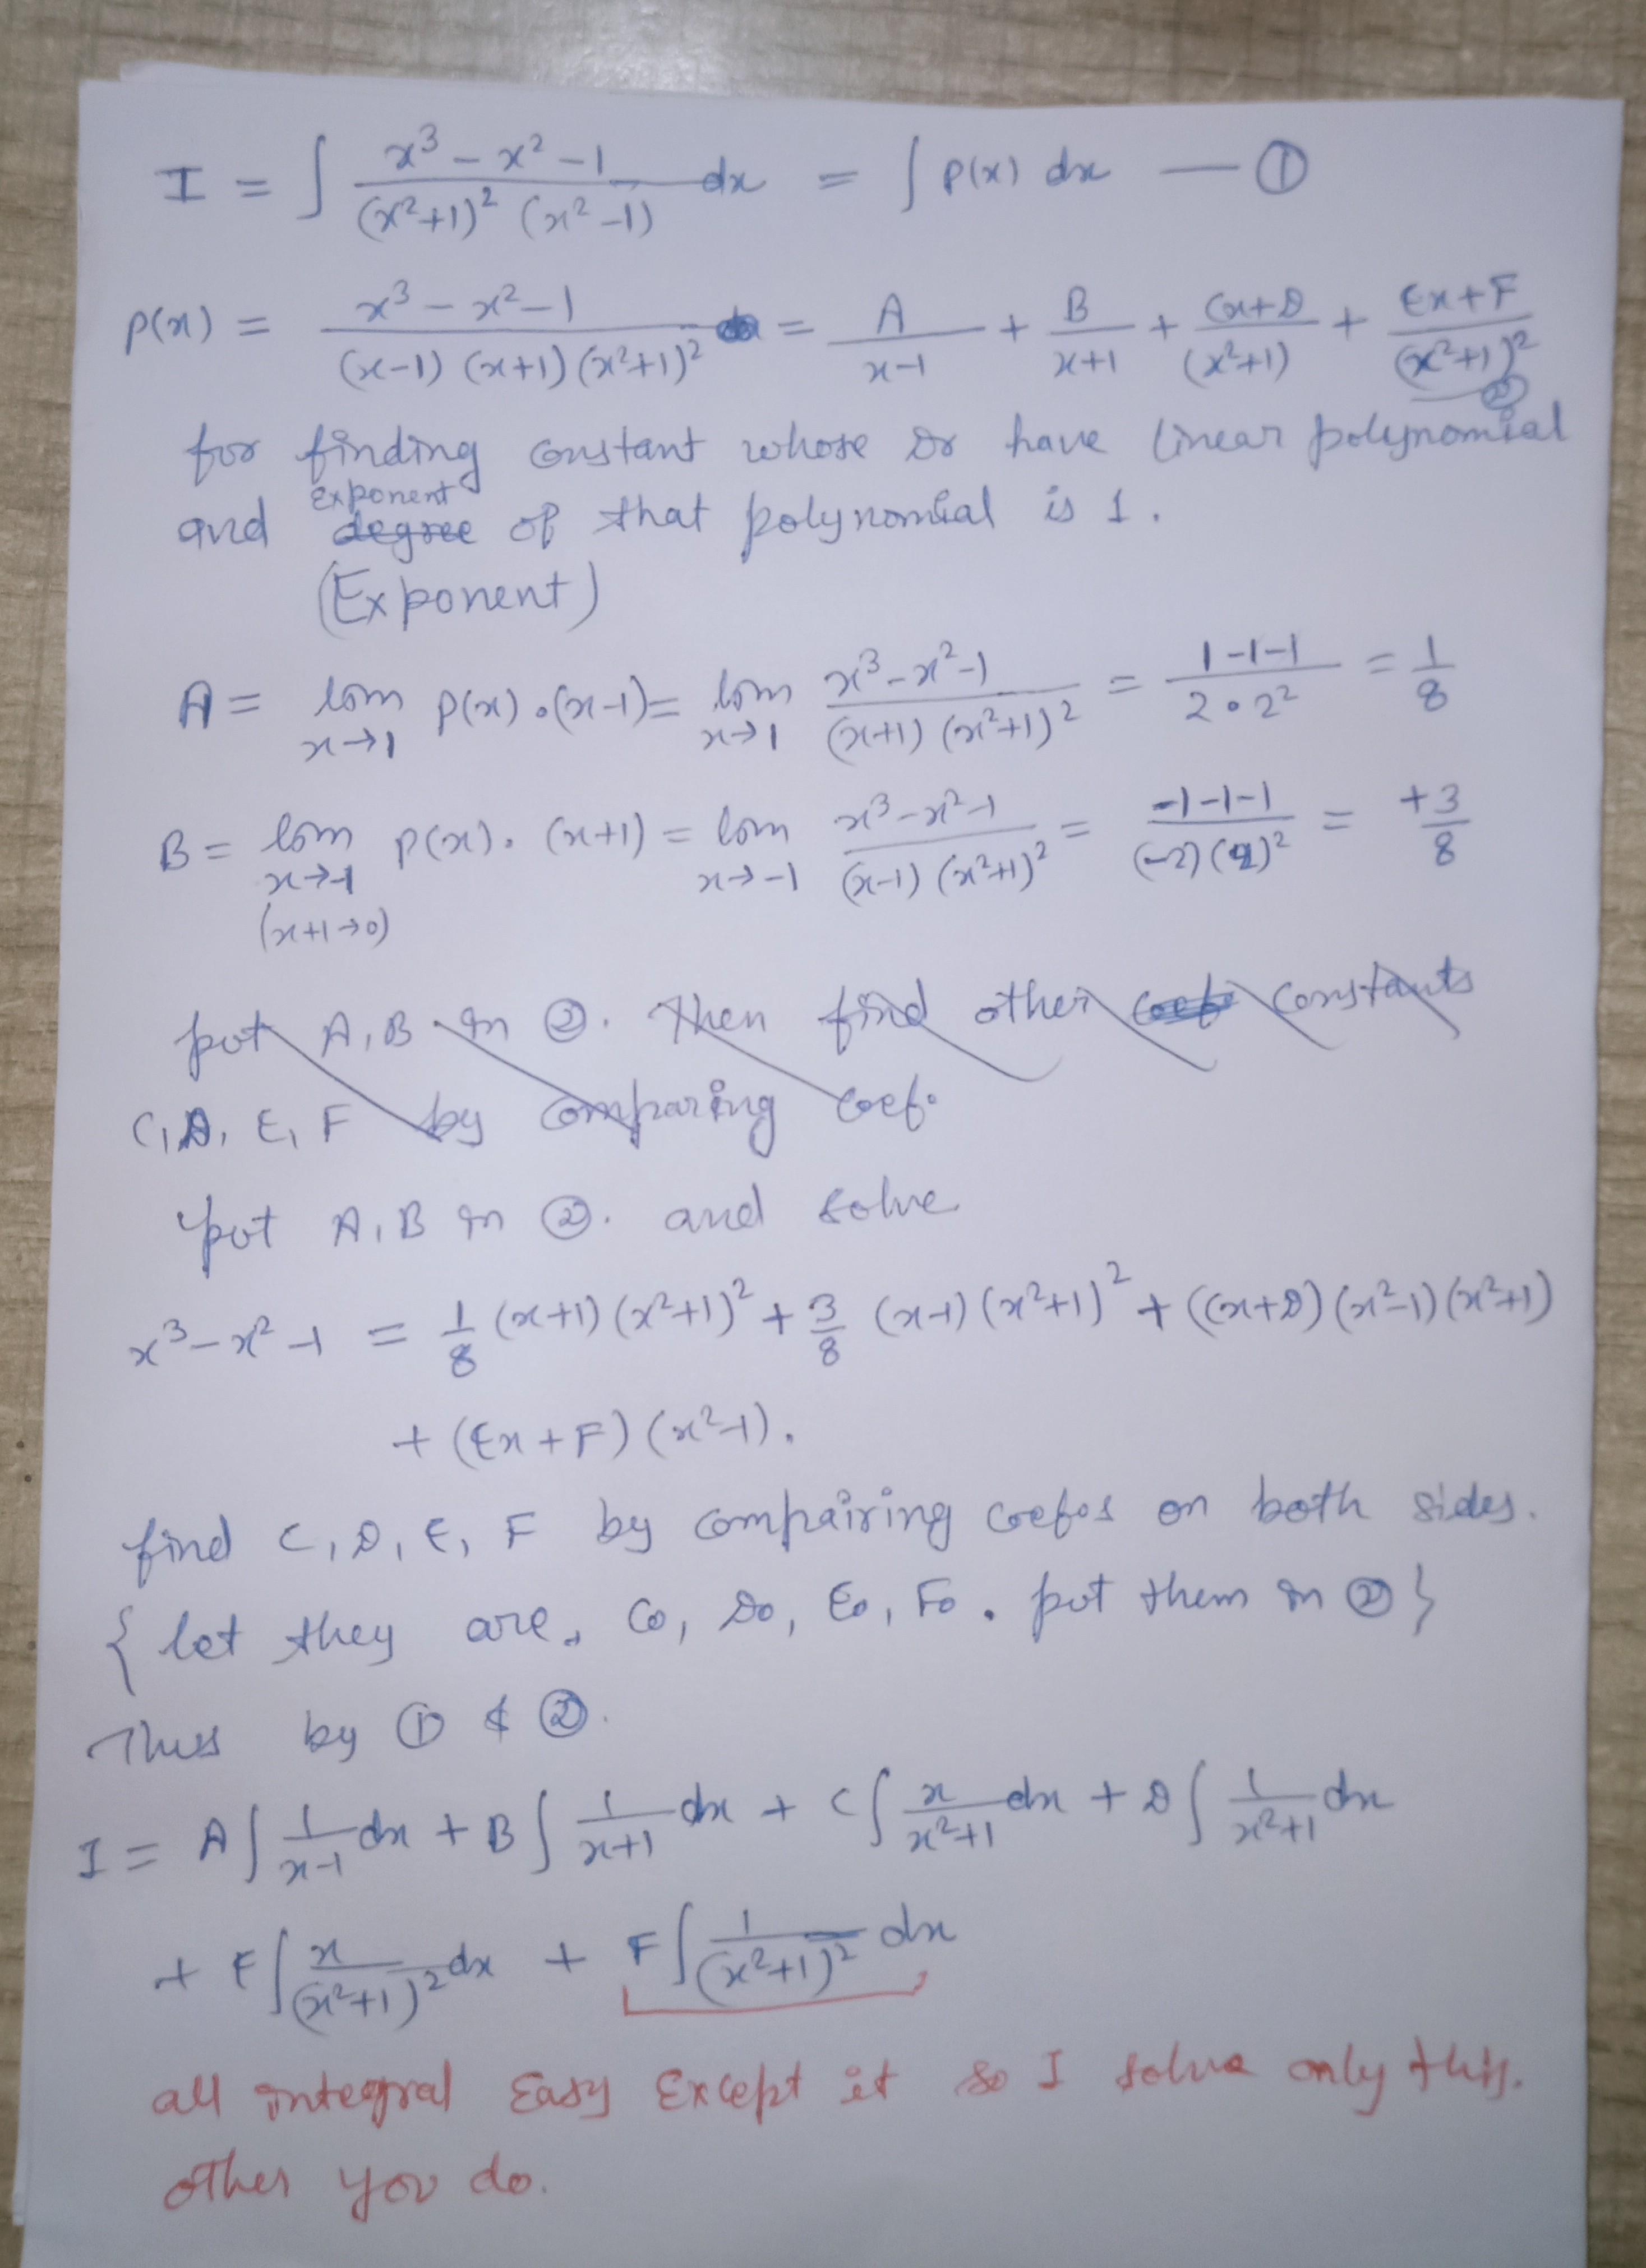 I = ∫ (x³ - x² - 1)/((x²+1)² (x²-1)) dx = ∫ P(x) dx — ①
P(x) = (x³ - x² - 1)/((x-1) (x+1) (x²+1)²) = A/(x-1) + B/(x+1) + (Cx+D)/(x²+1) + (Ex+F)/(x²+1)² ②
for finding constant whose Dr have linear polynomial
Exponent
and degree of that polynomial is 1.
(Exponent)
A = lim x→1 P(x)·(x-1) = lim x→1 (x³-x²-1)/((x+1) (x²+1)²) = (1-1-1)/(2·2²) = 1/8
B = lim x→-1 P(x). (x+1) = lim x→-1 (x³-x²-1)/((x-1) (x²+1)²) = (-1-1-1)/((-2)(2)²) = +3/8
(x+1→0)
put A, B in ②. Then find other coef constants
C, D, E, F by comparing coef.
put A, B in ②. and solve
x³-x²-1 = 1/8 (x+1) (x²+1)² + 3/8 (x-1) (x²+1)² + (Cx+D) (x²-1) (x²+1)
+ (Ex+F) (x²-1).
find C, D, E, F by compairing coefos on both sides.
{ let they are, C₀, D₀, E₀, F₀. put them in ② }
Thus by ① & ②.
I = A ∫ 1/(x-1) dx + B ∫ 1/(x+1) dx + C ∫ x/(x²+1) dx + D ∫ 1/(x²+1) dx
+ E ∫ x/(x²+1)² dx + F ∫ 1/(x²+1)² dx
all integral Easy Except it so I solve only this.
other you do.